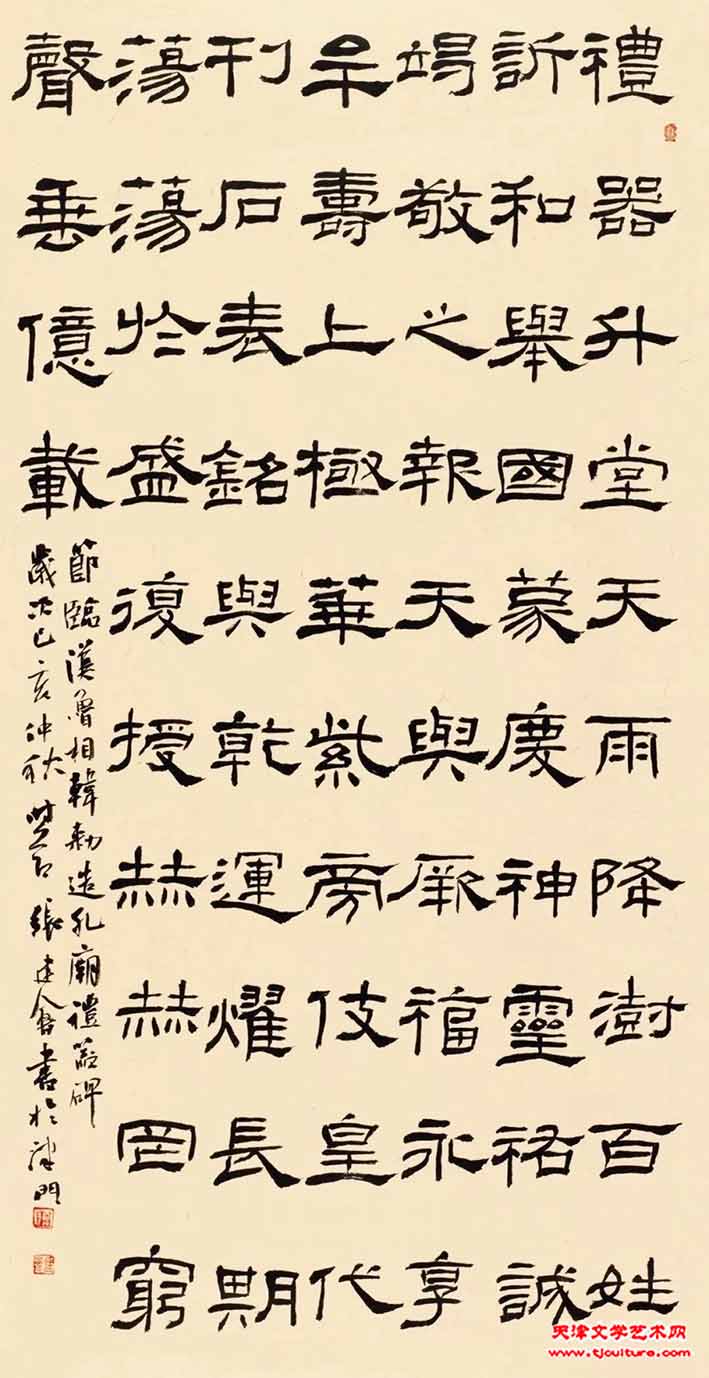 禮器升堂天雨降澍百姓
訢和舉國蒙慶神靈祐誠
竭敬之報天與厥福永享
牟壽上極華紫旁伎皇代
刊石表銘與乾運燿長期
蕩蕩於盛復授赫赫罔窮
聲垂億載
節臨漢魯相韓勅造孔廟禮器碑
歲次己亥仲秋張建會書於津門
天津文学艺术网
www.tjculture.com